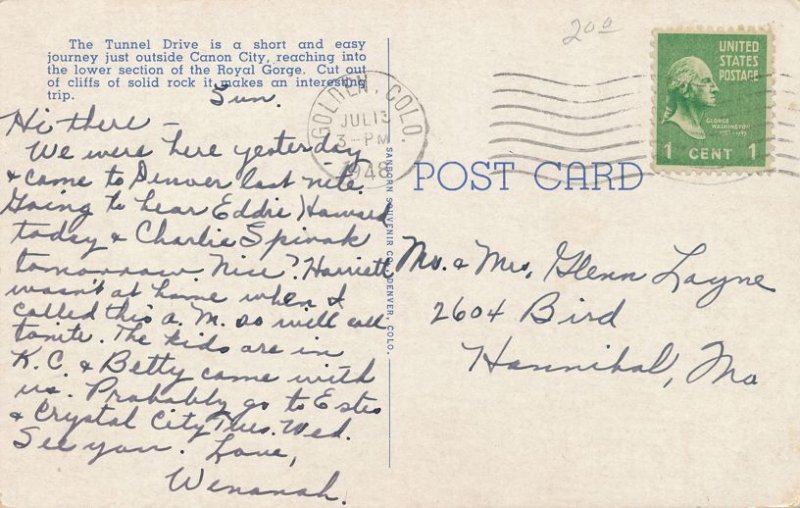 The Tunnel Drive is a short and easy
journey just outside Canon City, reaching into
the lower section of the Royal Gorge. Cut out
of cliffs of solid rock it makes an interesting
trip.
Sun.
Hi there -
We were here yesterday
& came to Denver last nite.
Going to hear Eddie Howard
today & Charlie Spivak
tomorrow. Nice? Harriett
wasn't at home when I
called this a.m. so will call
tonite. The kids are in
K.C. & Betty came with
us. Probably go to Estes
& Crystal City Tues. Wed.
See you. Love,
Wenonah.
GOLDEN, COLO.
JUL 13
3-PM
1948
SANBORN SOUVENIR CO., DENVER, COLO.
POST CARD
200
UNITED
STATES
POSTAGE
GEORGE
WASHINGTON
1 CENT 1
Mr. & Mrs. Glenn Layne
2604 Bird
Hannibal, Mo